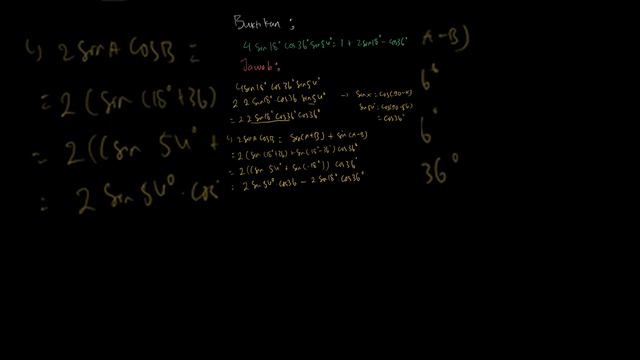 Buktikan :
4 sin 18° cos 36° sin 54° = 1 + 2 sin 18° - cos 36°
Jawab :
4 sin 18° cos 36° sin 54°
2 2 sin 18° cos 36 sin 54° → sin x = cos (90-x)
= 2 2 sin 18° cos 36° cos 36°
= cos 36°
↳ 2 sin A cos B = sin (A+B) + sin (A-B)
= 2 (sin (18°+36) + sin (18°-36°) cos 36°
= 2 ((sin 54° + sin (-18°)) cos 36°
= 2 sin 54° cos 36 - 2 sin 18° cos 36°
↳ 2 sin A cos B =
= 2 (sin (18°+36)
= 2 ((sin 54° +
= 2 sin 54° . cos
A-B)
6°
6°
36°